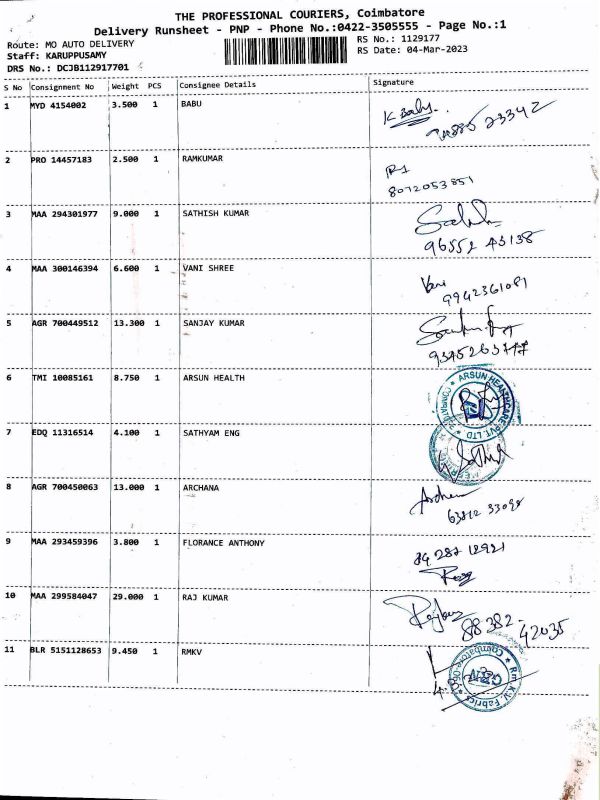 THE PROFESSIONAL COURIERS, Coimbatore
Delivery Runsheet - PNP - Phone No.:0422-3505555 - Page No.:1
Route: MO AUTO DELIVERY RS No.: 1129177
Staff: KARUPPUSAMY RS Date: 04-Mar-2023
DRS No.: DCJB112917701
S No Consignment No Weight PCS Consignee Details Signature
1 MYD 4154002 3.500 1 BABU
K Babu
2 PRO 14457183 2.500 1 RAMKUMAR
8072053851
3 MAA 294301977 9.000 1 SATHISH KUMAR
96552 45138
4 MAA 300146394 6.600 1 VANI SHREE
Vani
9942361081
5 AGR 700449512 13.300 1 SANJAY KUMAR
6 TMI 10085161 8.750 1 ARSUN HEALTH
ARSUN HEALTHCARE PVT. LTD
7 EDQ 11316514 4.100 1 SATHYAM ENG
8 AGR 700450063 13.000 1 ARCHANA
9 MAA 293459396 3.800 1 FLORANCE ANTHONY
10 MAA 299584047 29.000 1 RAJ KUMAR
88382-
42035
11 BLR 5151128653 9.450 1 RMKV
Rm.K.V. Fabrics